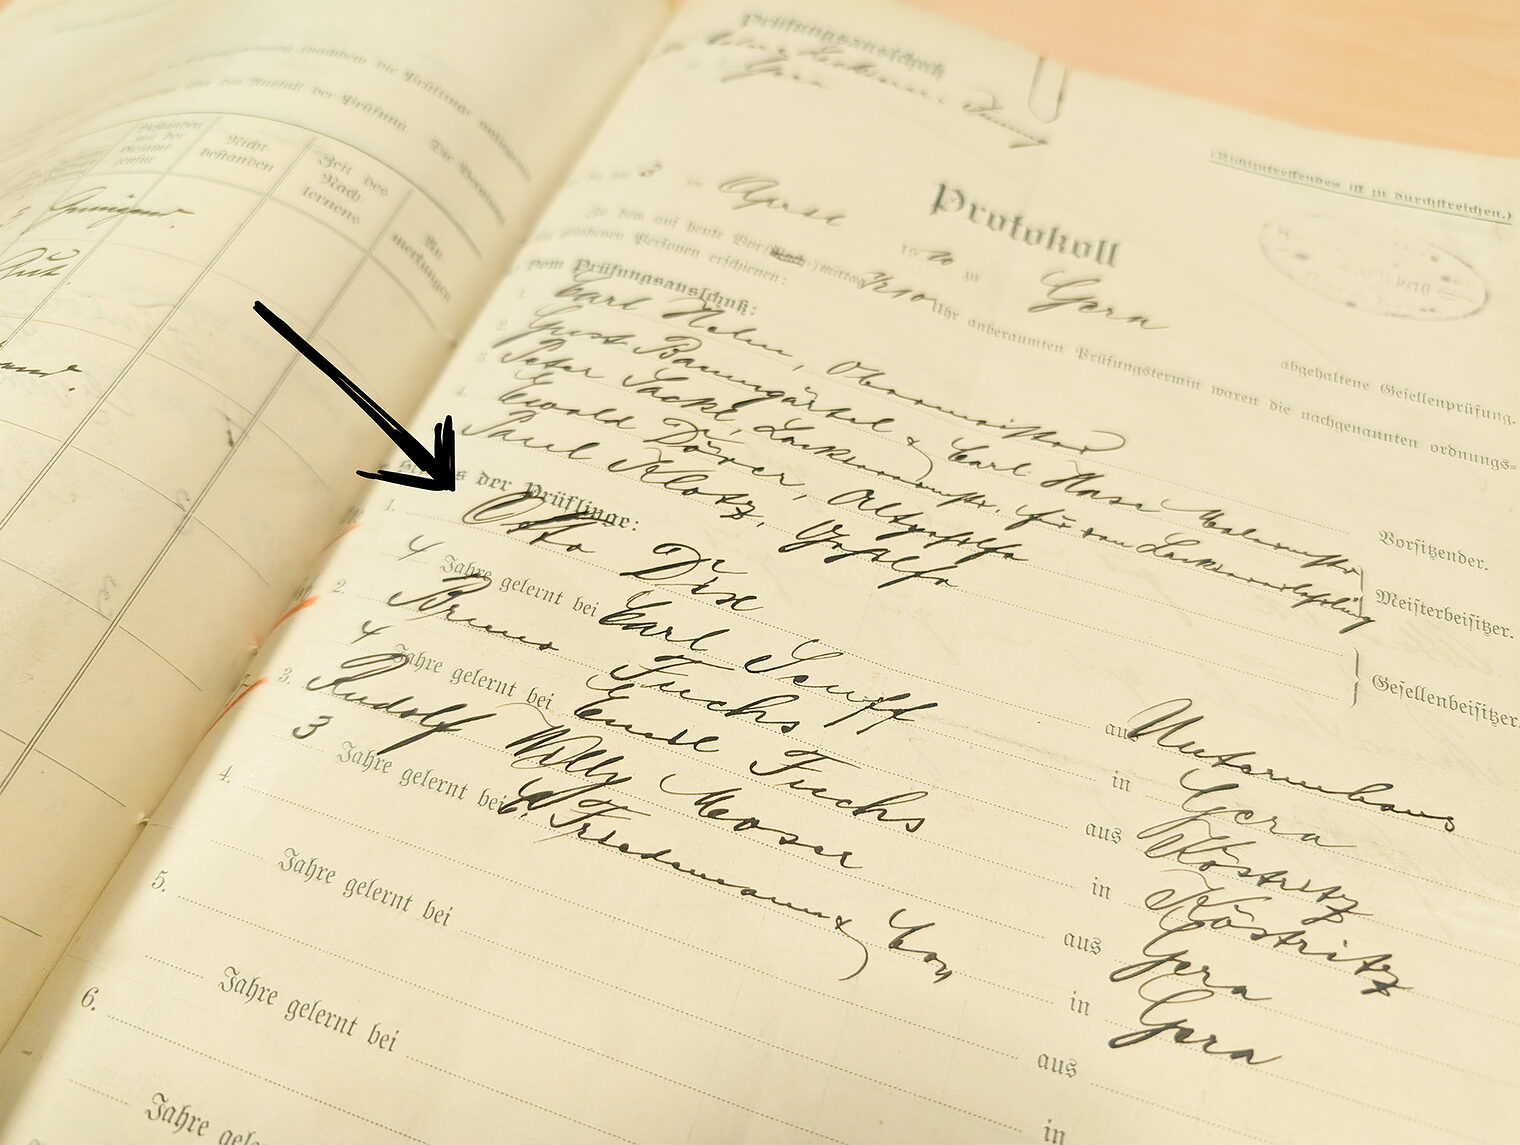 Bestanden mit der Gesamtzensur
Nicht bestanden
Zeit des Nachlernens
Anmerkungen
über den Ausfall der Prüfung.
Genügend.
Gut.
Prüfungsausschuß
Gera
(Nichtzutreffendes ist zu durchstreichen.)
Protokoll
3 April 1910 zu Gera abgehaltene Gesellenprüfung.
Zu dem auf heute Vor(Nach-)mittag ½10 Uhr anberaumten Prüfungstermin waren die nachgenannten ordnungs-
geladenen Personen erschienen:
vom Prüfungsausschuß:
1. Carl Obermeister Vorsitzender.
2. Gust Baumgärtel & Carl Hase Malermstr
3. Peter Sackl, Lackierermstr. für den Lackiererlehrling Meisterbeisitzer.
4. Ewald Dörer, Altgeselle
Paul Klotz, Geselle Gesellenbeisitzer.
der Prüflinge:
1. Otto Dix aus Untermhaus
4 Jahre gelernt bei Carl Senff in Gera
2. Bruno Fuchs aus Köstritz
4 Jahre gelernt bei Emil Fuchs in Köstritz
3. Rudolf Willy Moser aus Gera
3 Jahre gelernt bei C. Friedemann & Con in Gera
4. aus
Jahre gelernt bei in
5.
Jahre gelernt bei
6.
Jahre gelernt bei